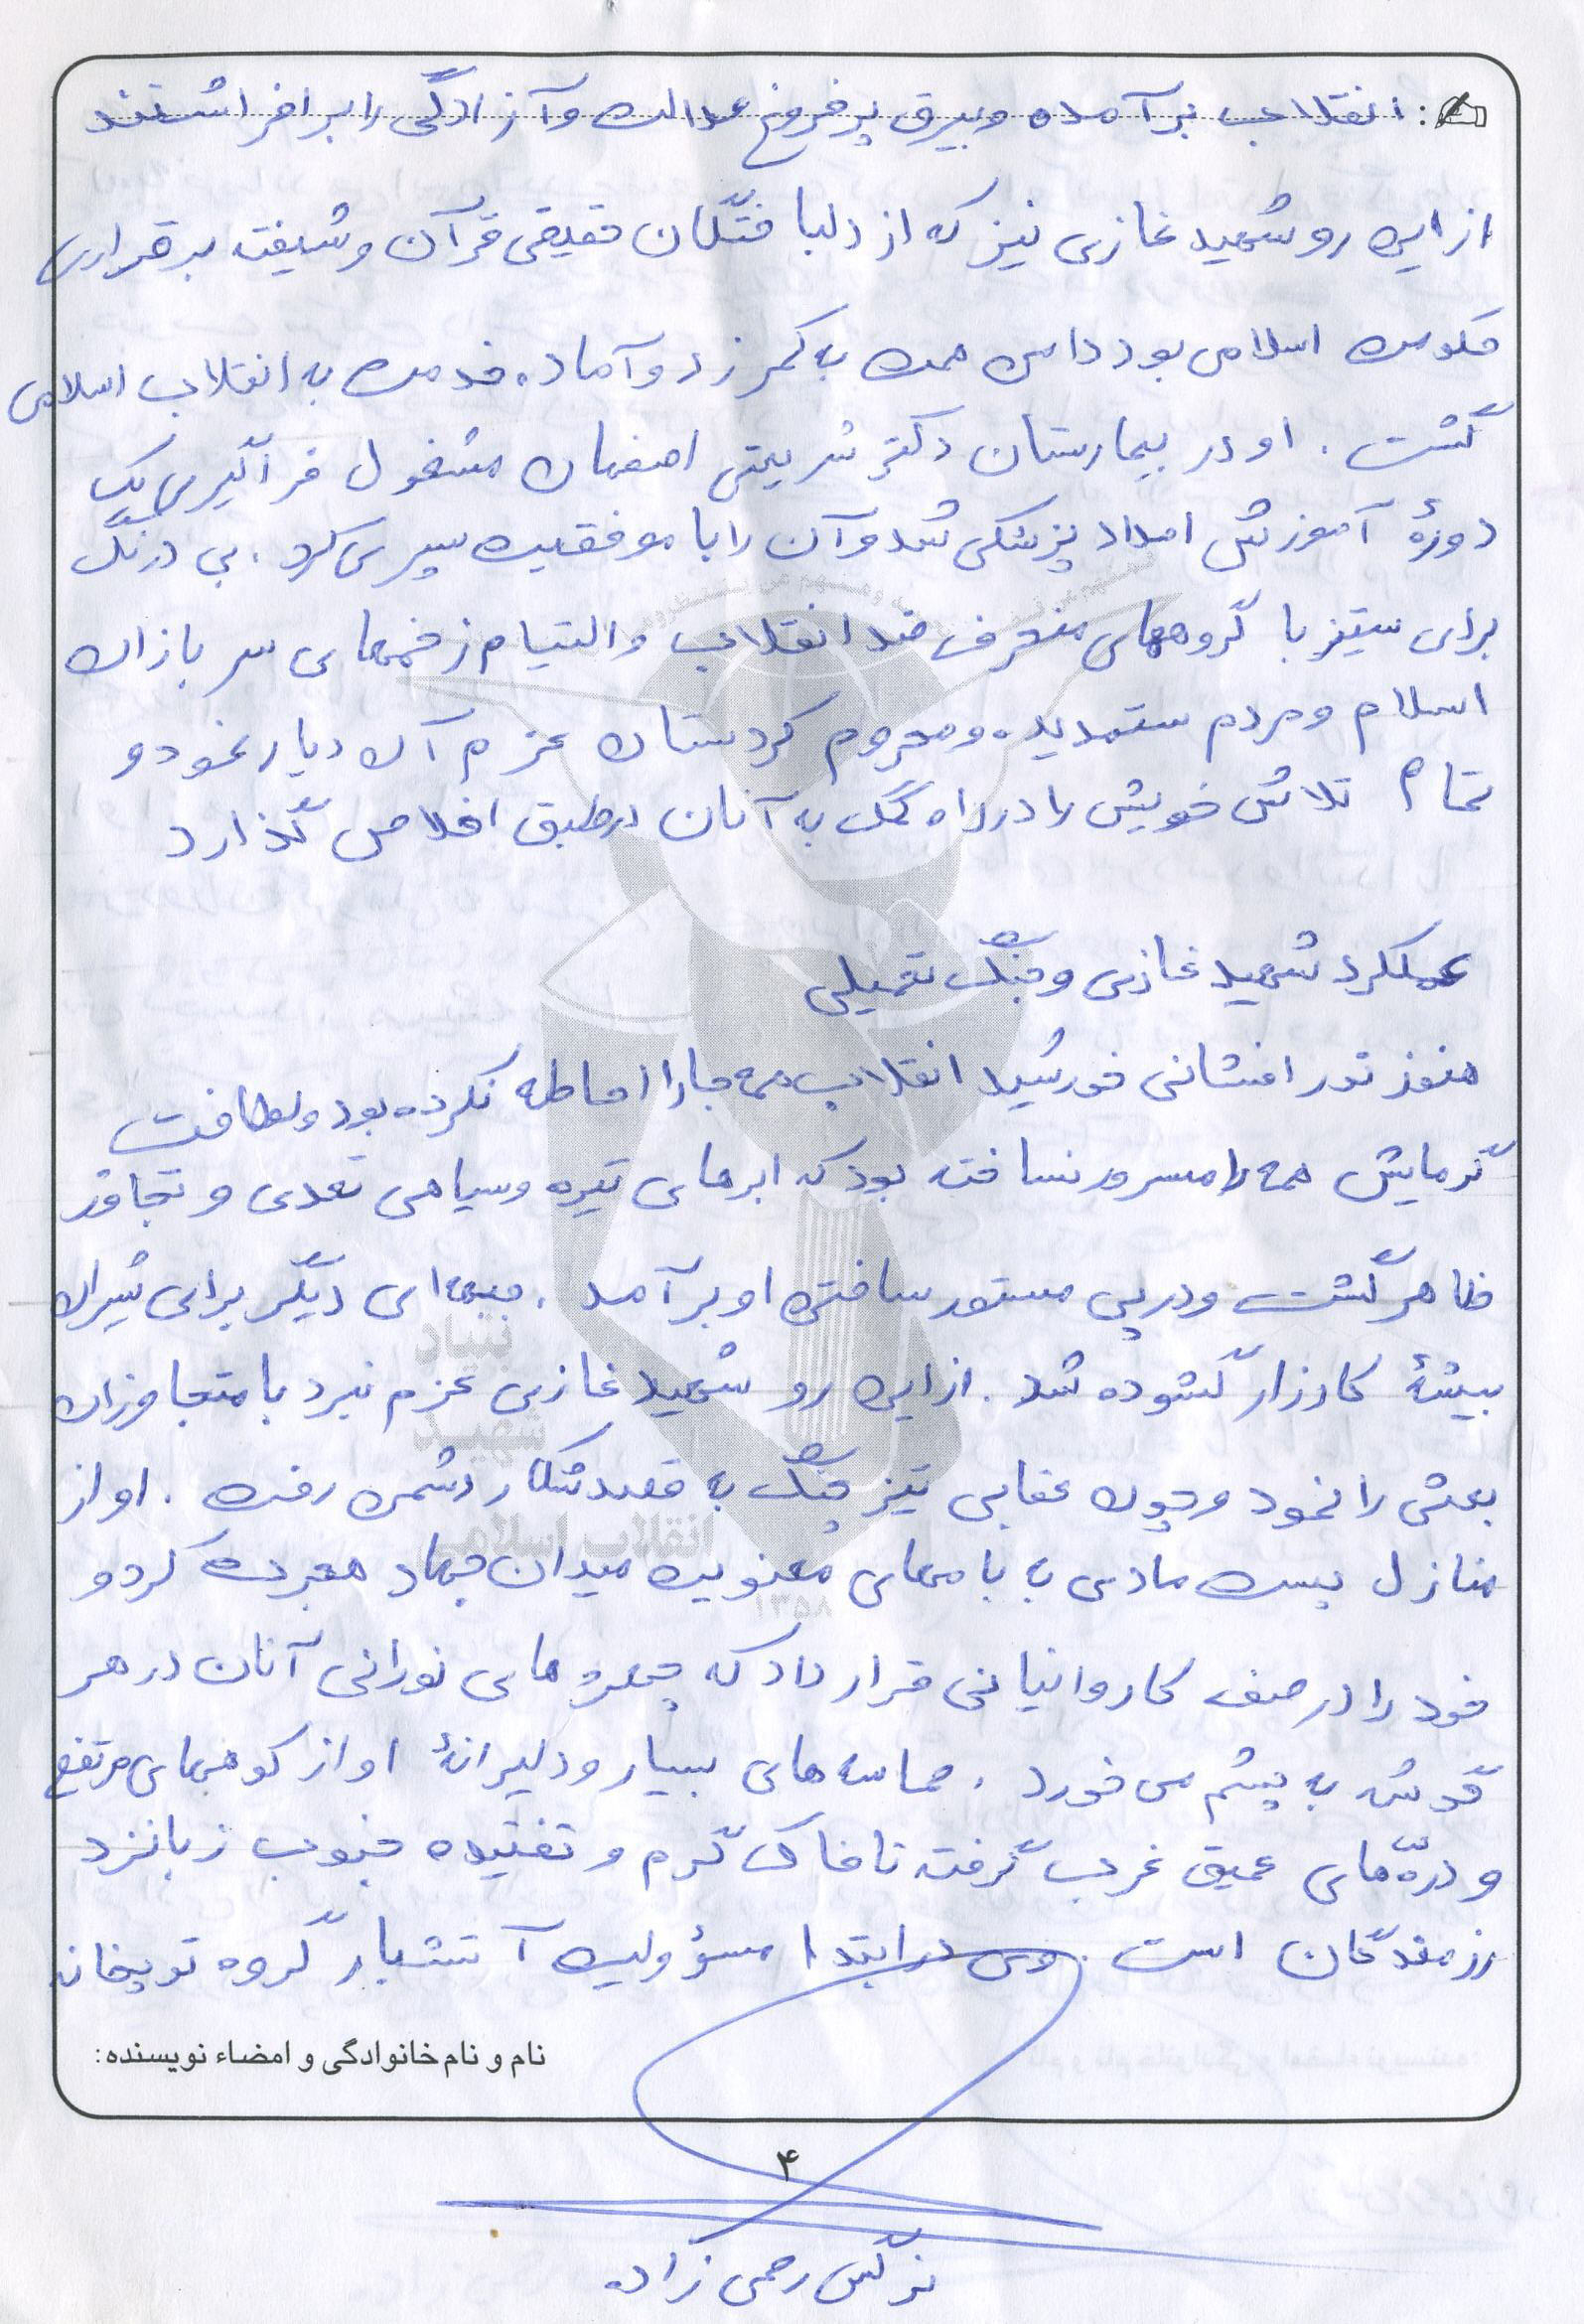 انقلاب برآمده و بیرق پرفروغ عدالت و آزادگی را برافراشتند
از این رو شهید غازی نیز که از دلباختگان حقیقی قرآن و شیفته برقراری
حکومت اسلامی بود دامن همت به کمر زد و آماده خدمت به انقلاب اسلامی
گشت . او در بیمارستان دکتر شریعتی اصفهان مشغول فراگیری یک
دورهٔ آموزش امداد پزشکی شد و آن را با موفقیت سپری کرد . بی درنگ
برای ستیز با گروههای منحرف ضد انقلاب و التیام زخمهای سربازان
اسلام و مردم ستمدیده و محروم کردستان عزم آن دیار نمود و
تمام تلاش خویش را در راه کمک به آنان در طبق اخلاص گذارد
عملکرد شهید غازی و جنگ تحمیلی
هنوز نور افشانی خورشید انقلاب همه جا را احاطه نکرده بود و لطافت
گرمایش همه را مسرور نساخته بود که ابرهای تیره و سیاهی تعدی و تجاوز
ظاهر گشت و در پی مستور ساختن او برآمد . جبهه ای دیگر برای شیران
بیشهٔ کارزار گشوده شد . از این رو شهید غازی عزم نبرد با متجاوزان
بعثی را نمود و چون عقابی تیز چنگ به قصد شکار دشمن رفت . او از
منازل پست مادی به بامهای معنویت میدان جهاد هجرت کرد و
خود را در صف کاروانیانی قرار داد که جلوه های نورانی آنان در هر
گوشه به چشم می خورد . حماسه های بسیار و دلیرانهٔ او از کوههای مرتفع
و درّه های عمیق غرب گرفته تا خاک گرم و تفتیده جنوب زبانزد
رزمندگان است . وی در ابتدا مسؤولیت آتشبار گروه توپخانه
نام و نام خانوادگی و امضاء نویسنده:
۴
نرگس رحمی زاده
بنیاد
شهید
انقلاب اسلامی
۱۳۵۸